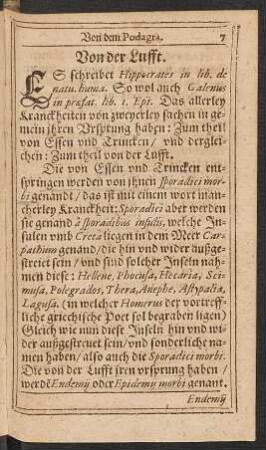 Von dem Podagra. 7
Von der Lufft.
ES schreibet Hippocrates in lib. de
natu. humā. So wol auch Galenus
in præfat. lib. 1. Epi. Das allerley
Kranckheiten von zweyerley sachen in ge-
mein jhren Vrsprung haben: Zum theil
von Essen vnd Trincken/ vnd derglei-
chen: Zum theil von der Lufft.
Die von Essen vnd Trincken ent-
springen werden von jhnen sporadici mor-
bi genandt/ das ist mit einem wort man-
cherley Kranckheit: Sporadici aber werden
sie genand à sporadibus insulis, welche In-
sulen vmb Creta liegen in dem Meer Car-
pathium genand/ die hin vnd wider außge-
strewet sein/ vnd sind solcher Inseln nah-
men diese: Hellene, Phocusa, Hecaria, Sci-
musa, Polegrados, Thera, Anephe, Astypalia,
Lagusa. (in welcher Homerus der vortreff-
liche griechische Poet sol begraben ligen)
Gleich wie nun diese Inseln hin vnd wi-
der außgestrewet sein/ vnd sonderliche na-
men haben/ also auch die Sporadici morbi.
Die von der Lufft jren vrsprung haben/
werdē Endemij oder Epidemij morbi genant.
Endemij